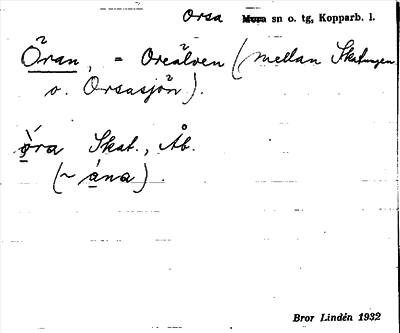 Orsa Mora sn o. tg, Kopparb. l.
Öran, = Oreälven (mellan Skattungen
o. Orsasjön).
ǫ̀ra Skat., Åb.
(~ ána).
Bror Lindén 1932